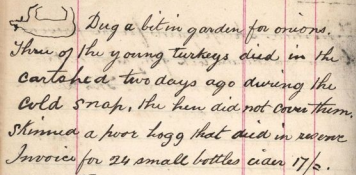 Dug a bit in garden for onions.
Three of the young turkeys died in the
cartshed two days ago during the
cold snap, the hen did not cover them.
Skinned a poor hogg that died in reserve
Invoice for 24 small bottles cider 17/=.